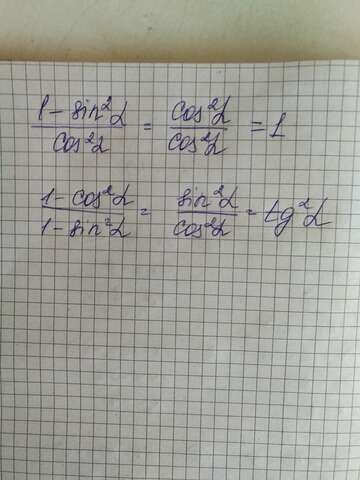 (1 - sin²α)/(cos²α) = (cos²α)/(cos²α) = 1
(1 - cos²α)/(1 - sin²α) = (sin²α)/(cos²α) = tg²α